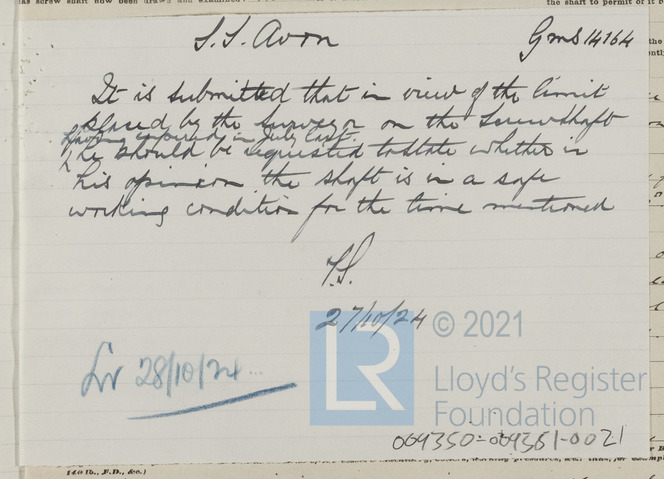 as screw shaft now been drawn and examined?
the shaft to permit of it b
S.S. Avon
Gms 14164
It is submitted that in view of the limit
placed by the Surveyor on the Screwshaft
having expired in July last
he should be requested to state whether in
his opinion the shaft is in a safe
working condition for the time mentioned
27/10/24
© 2021
LR
Lloyd's Register
Foundation
Lr 28/10/24
004350-004361-0021
140 lb., F.D., &c.)